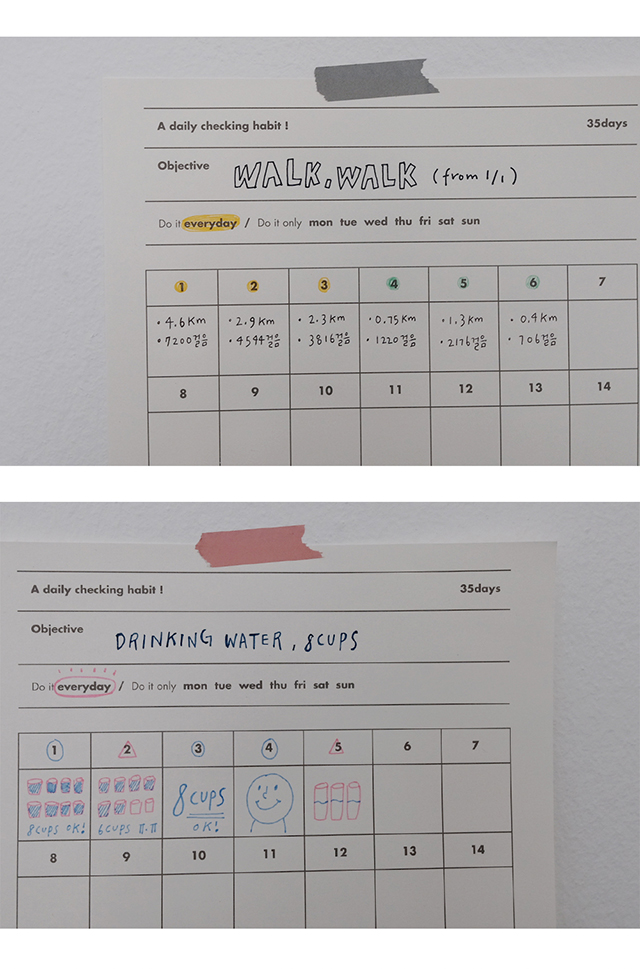 A daily checking habit ! 35days
Objective WALK, WALK (from 1/1)
Do it everyday / Do it only mon tue wed thu fri sat sun
1 2 3 4 5 6 7
• 4.6Km • 2.9Km • 2.3Km • 0.75Km • 1.3Km • 0.4Km
• 7200걸음 • 4594걸음 • 3816걸음 • 1220걸음 • 2176걸음 • 706걸음
8 9 10 11 12 13 14
A daily checking habit ! 35days
Objective DRINKING WATER, 8CUPS
Do it everyday / Do it only mon tue wed thu fri sat sun
1 2 3 4 5 6 7
8CUPS
8CUPS OK! 6CUPS ㅠ.ㅠ OK!
8 9 10 11 12 13 14